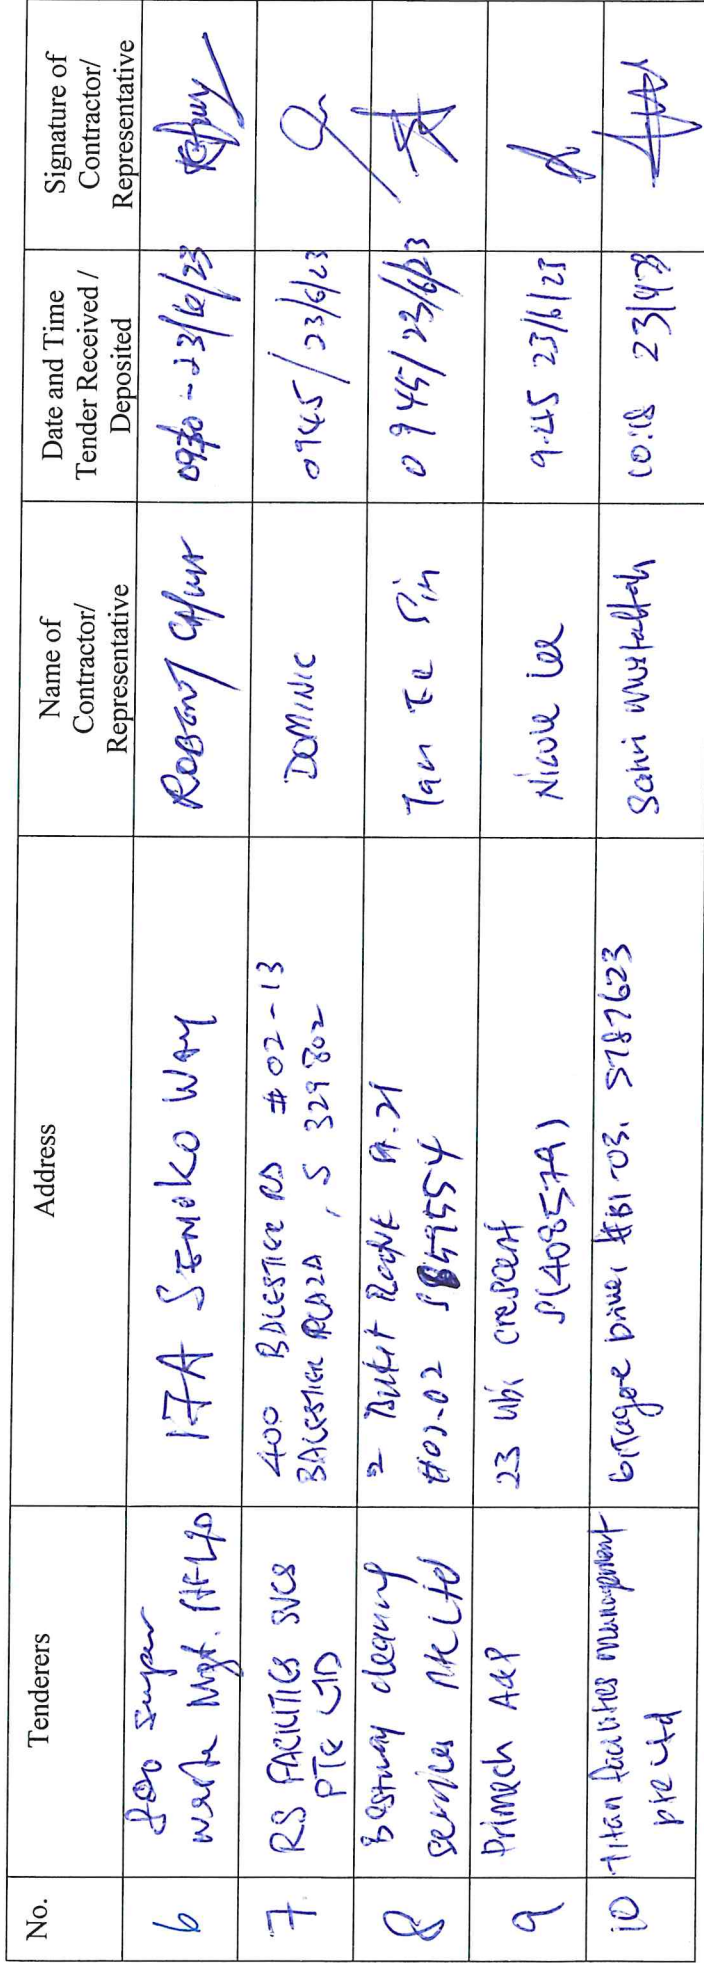 No.
Tenderers
Address
Name of
Contractor/
Representative
Date and Time
Tender Received /
Deposited
Signature of
Contractor/
Representative
6
800 Super
Waste Mgt.
17A SENOKO WAY
0930 - 23/6/23
7.
RS FACILITIES SVCS
PTE LTD
400 BALESTIER RD #02-13
BALESTIER PLAZA, S 329802
DOMINIC
0945/23/6/23
8
Bestway cleaning
services Pte Ltd
2 Bukit
S659554
Tan
0945/23/6/23
9
Primech A&P
23 Ubi crescent
S(408579)
Nicole Lee
9.45 23/6/23
10
Titan facilities management
pte Ltd
6 Tagore Drive, #B1-03. S787623